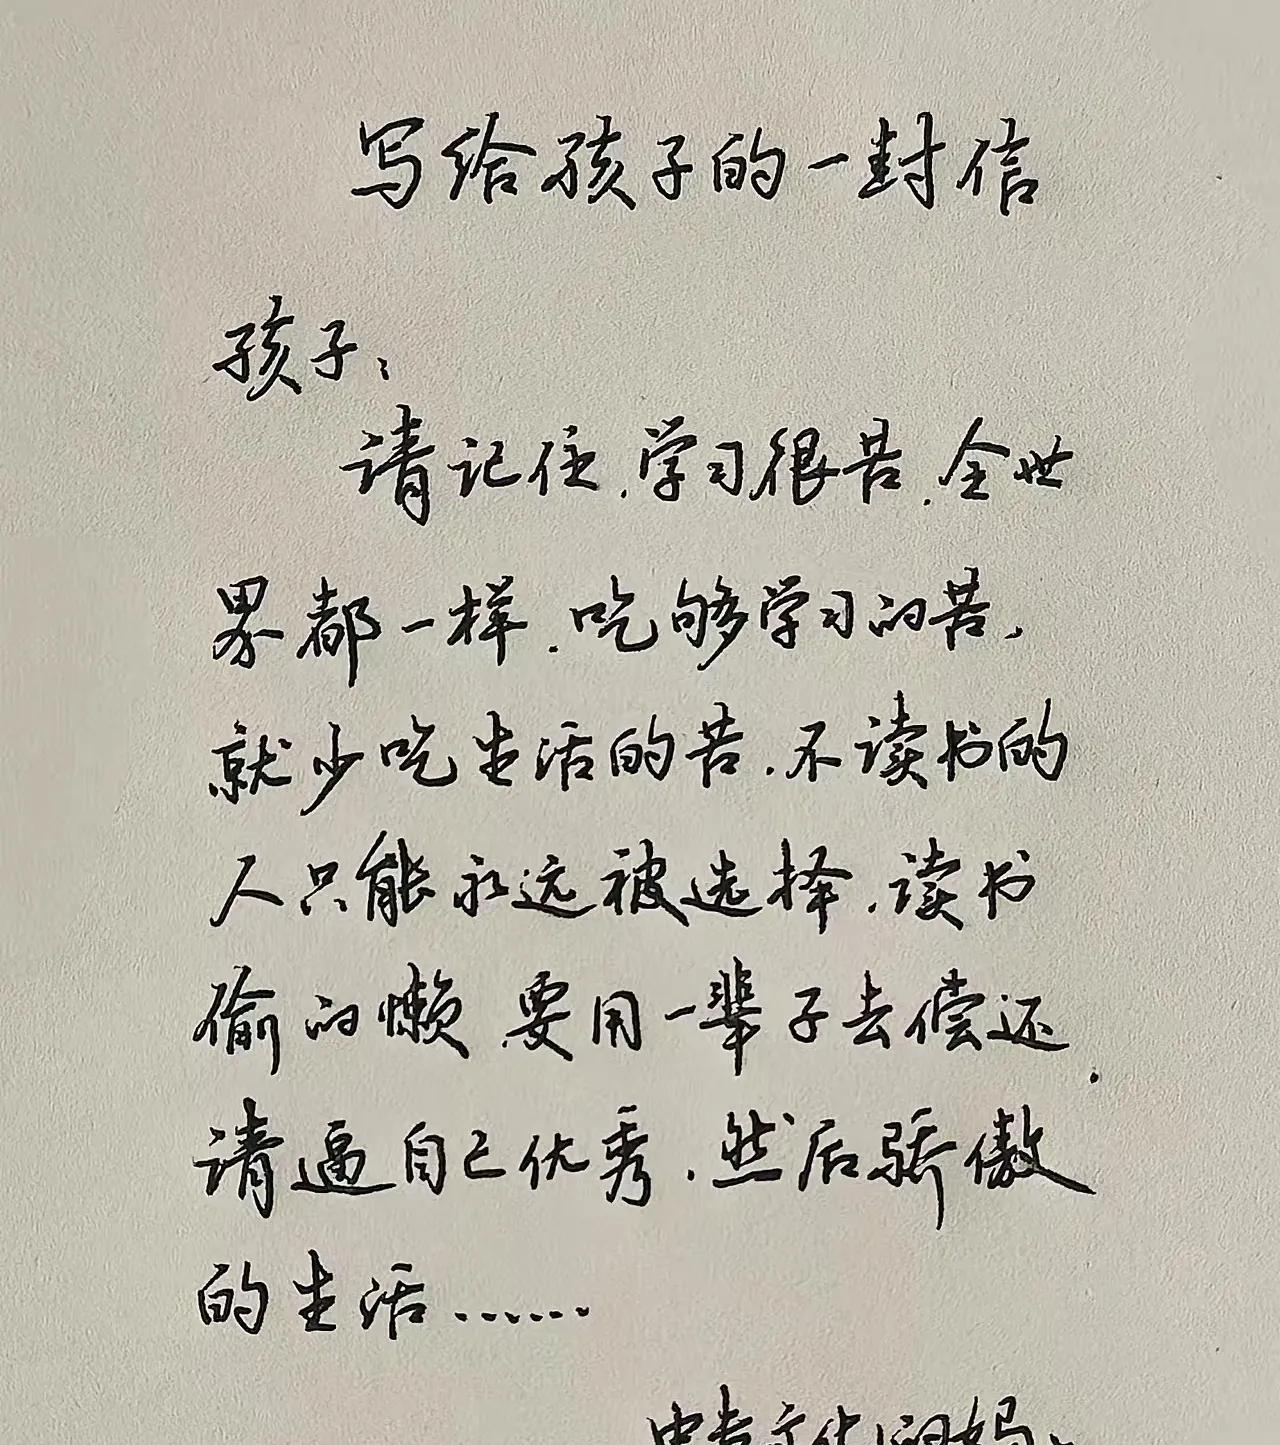 写给孩子的一封信
孩子：
请记住，学习很苦，全世
界都一样，吃够学习的苦，
就少吃生活的苦，不读书的
人只能永远被选择，读书
偷的懒，要用一辈子去偿还．
请逼自己优秀，然后骄傲
的生活……
中专文化的妈妈